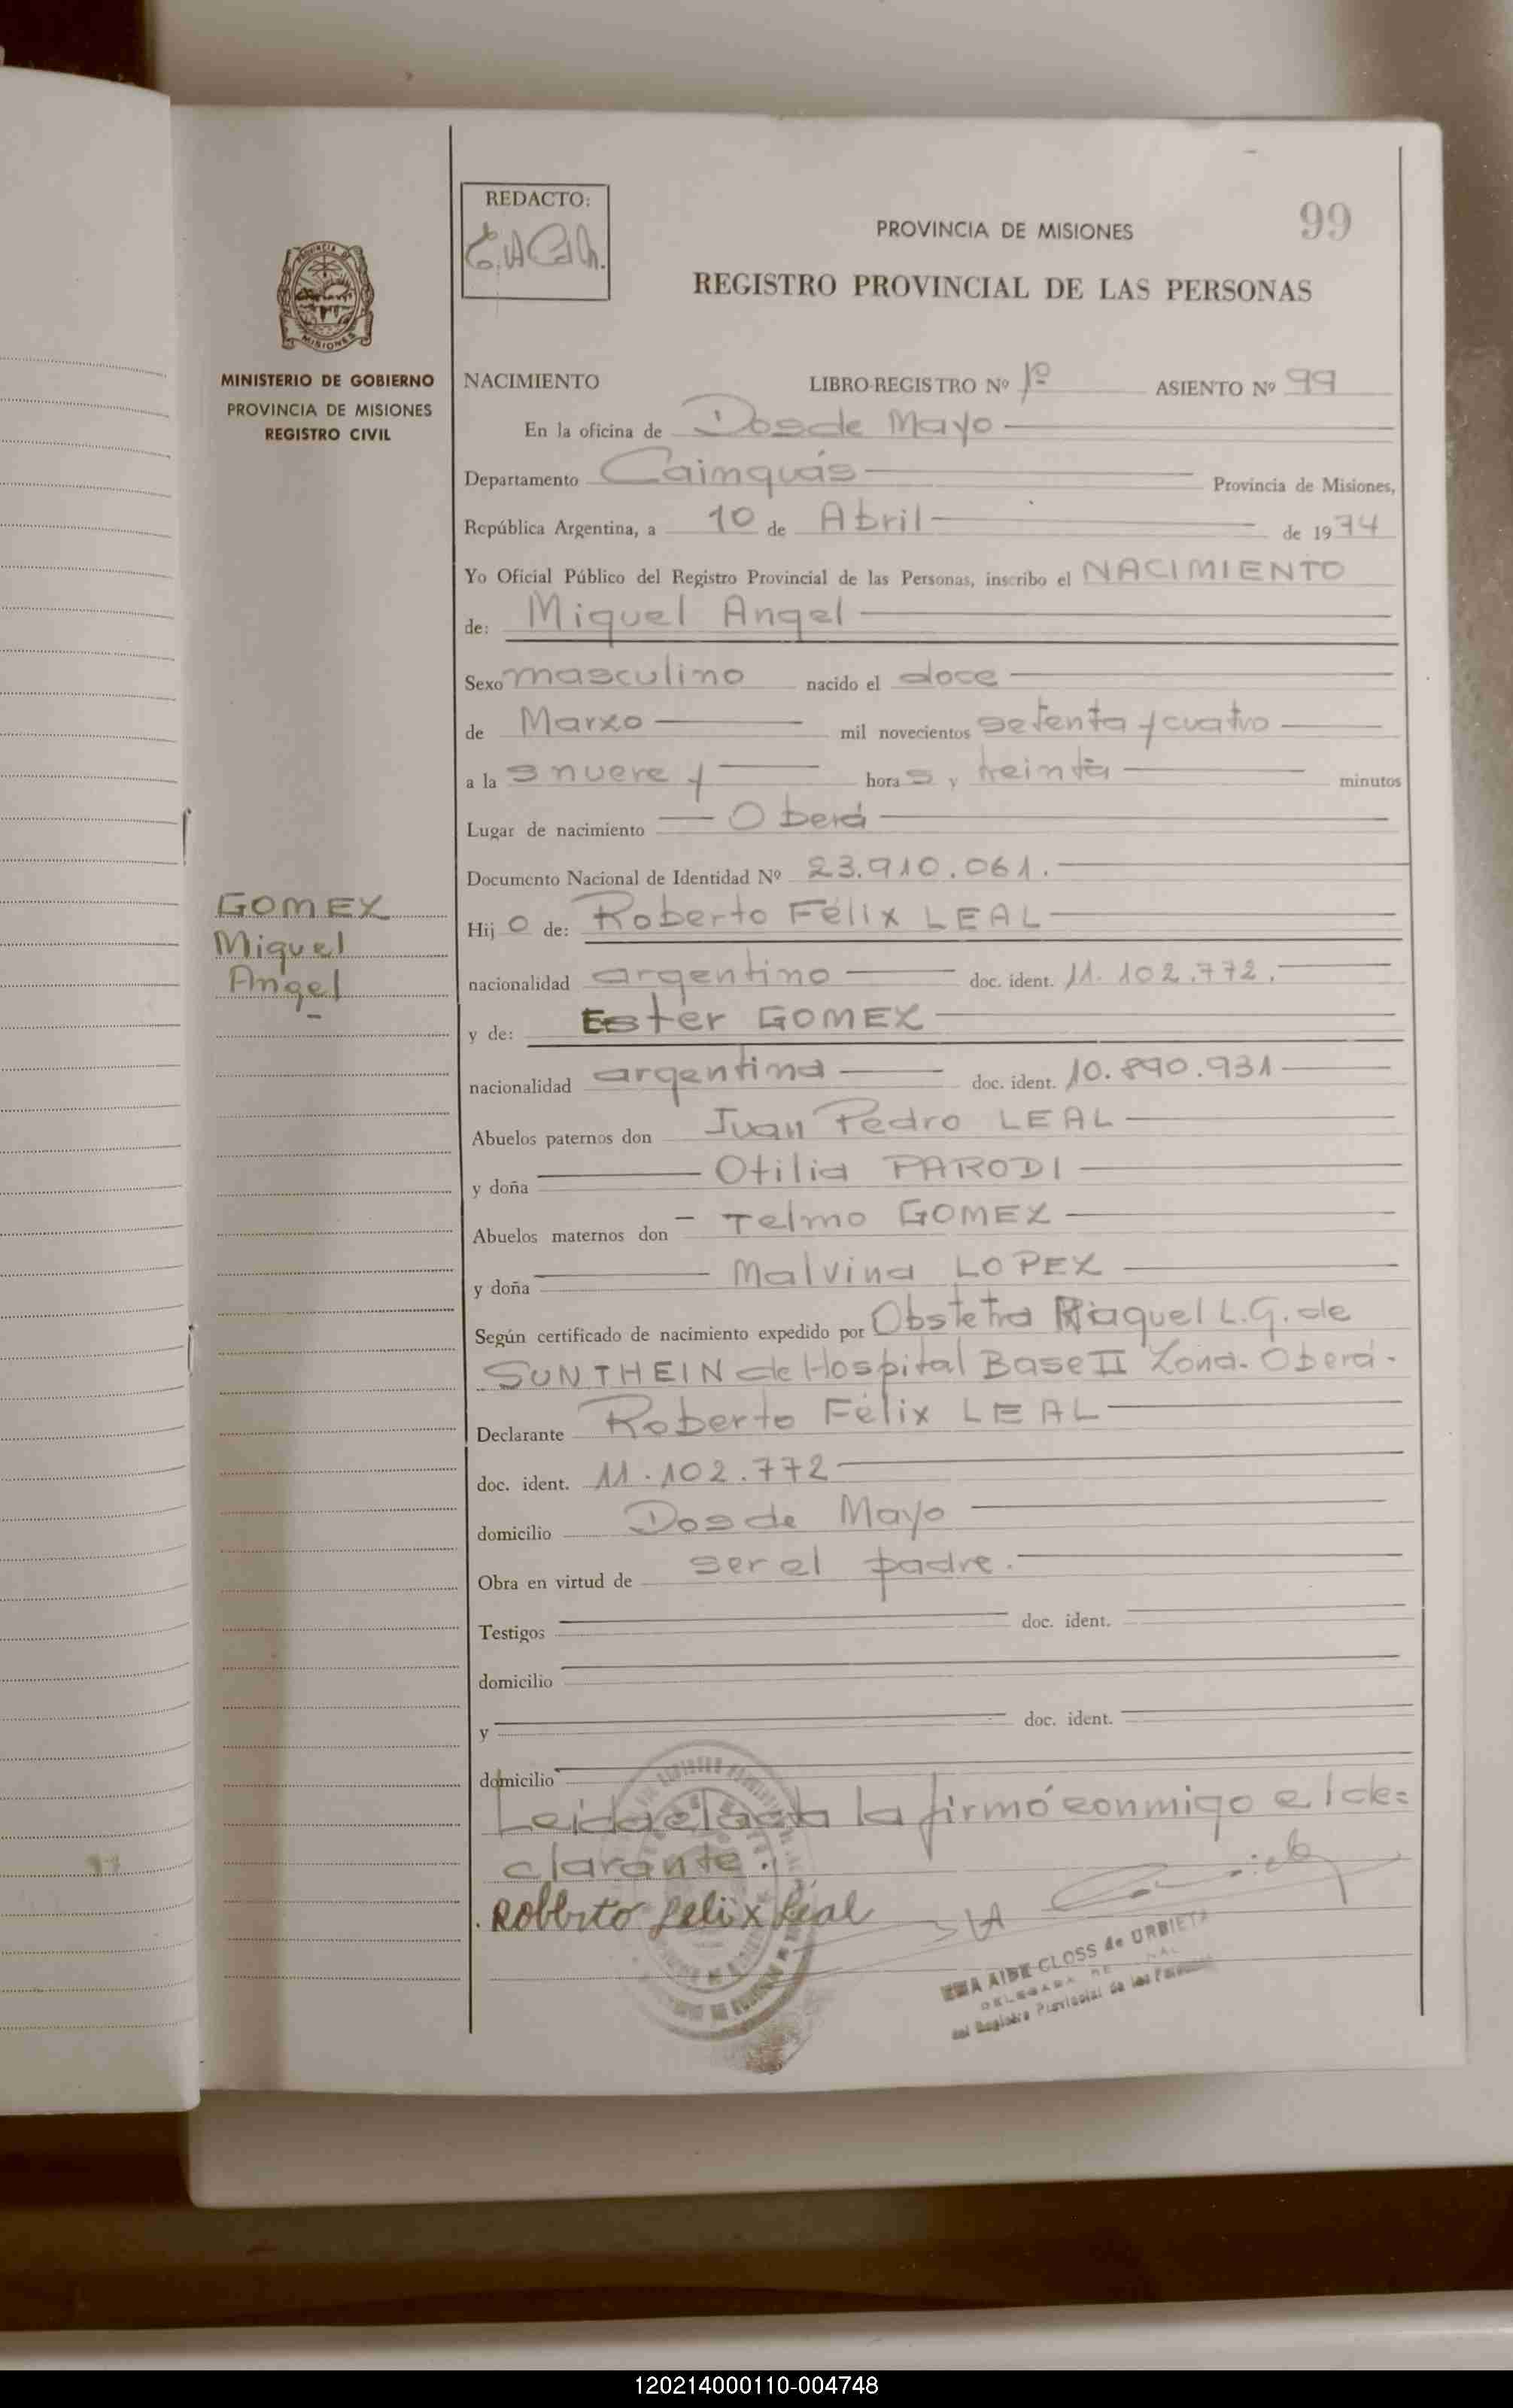 REDACTO:
99
PROVINCIA DE MISIONES
REGISTRO PROVINCIAL DE LAS PERSONAS
PROVINCIA DE
MISIONES
MINISTERIO DE GOBIERNO
PROVINCIA DE MISIONES
REGISTRO CIVIL
NACIMIENTO LIBRO-REGISTRO Nº 1º ASIENTO Nº 99
En la oficina de Dos de Mayo
Departamento Cainguás Provincia de Misiones,
República Argentina, a 10 de Abril de 1974
Yo Oficial Público del Registro Provincial de las Personas, inscribo el NACIMIENTO
de: Miguel Angel
Sexo masculino nacido el doce
de Marzo mil novecientos setenta y cuatro
a la s nueve y horas y treinta minutos
Lugar de nacimiento Oberá
Documento Nacional de Identidad Nº 23.910.061.
GOMEZ
Miguel
Angel
Hijo de: Roberto Félix LEAL
nacionalidad argentino doc. ident. 11.102.772.
y de: Ester GOMEZ
nacionalidad argentina doc. ident. 10.890.931
Abuelos paternos don Juan Pedro LEAL
y doña Otilia PARODI
Abuelos maternos don Telmo GOMEZ
y doña Malvina LOPEZ
Según certificado de nacimiento expedido por Obstetra Raquel L.G. de
SUNTHEIN de Hospital Base II Zona. Oberá.
Declarante Roberto Félix LEAL
doc. ident. 11.102.772
domicilio Dos de Mayo
Obra en virtud de ser el padre.
Testigos doc. ident.
domicilio
y doc. ident.
domicilio
Leida el acta la firmó conmigo el de=
clarante.
Roberto Felix Leal
EMA AIDE CLOSS de URBIETA
DELEGADA
del Registro Provincial de las Personas
120214000110-004748